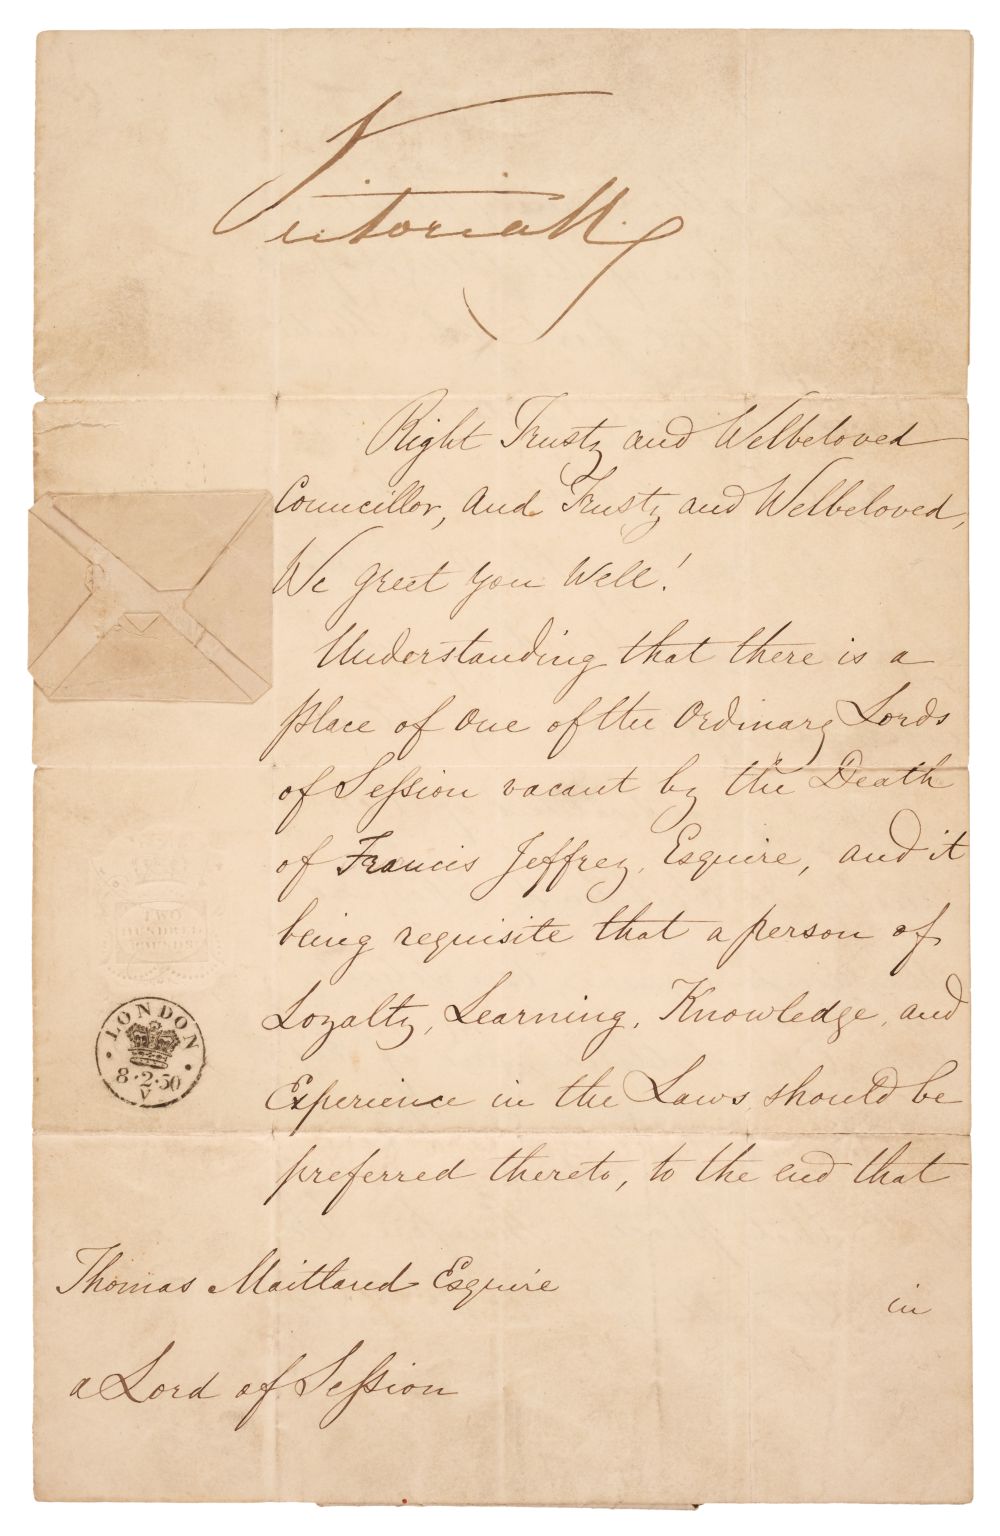 Victoria R.
Right Trusty and Welbeloved
Councillor, and Trusty and Welbeloved,
We greet you Well!
Understanding that there is a
place of One of the Ordinary Lords
of Session vacant by the Death
of Francis Jeffrey, Esquire, and it
being requisite that a person of
Loyalty, Learning, Knowledge, and
Experience in the Laws, should be
preferred thereto, to the end that
in
TWO
HUNDRED
POUNDS
LONDON
8·2·50
V
Thomas Maitland Esquire
a Lord of Session